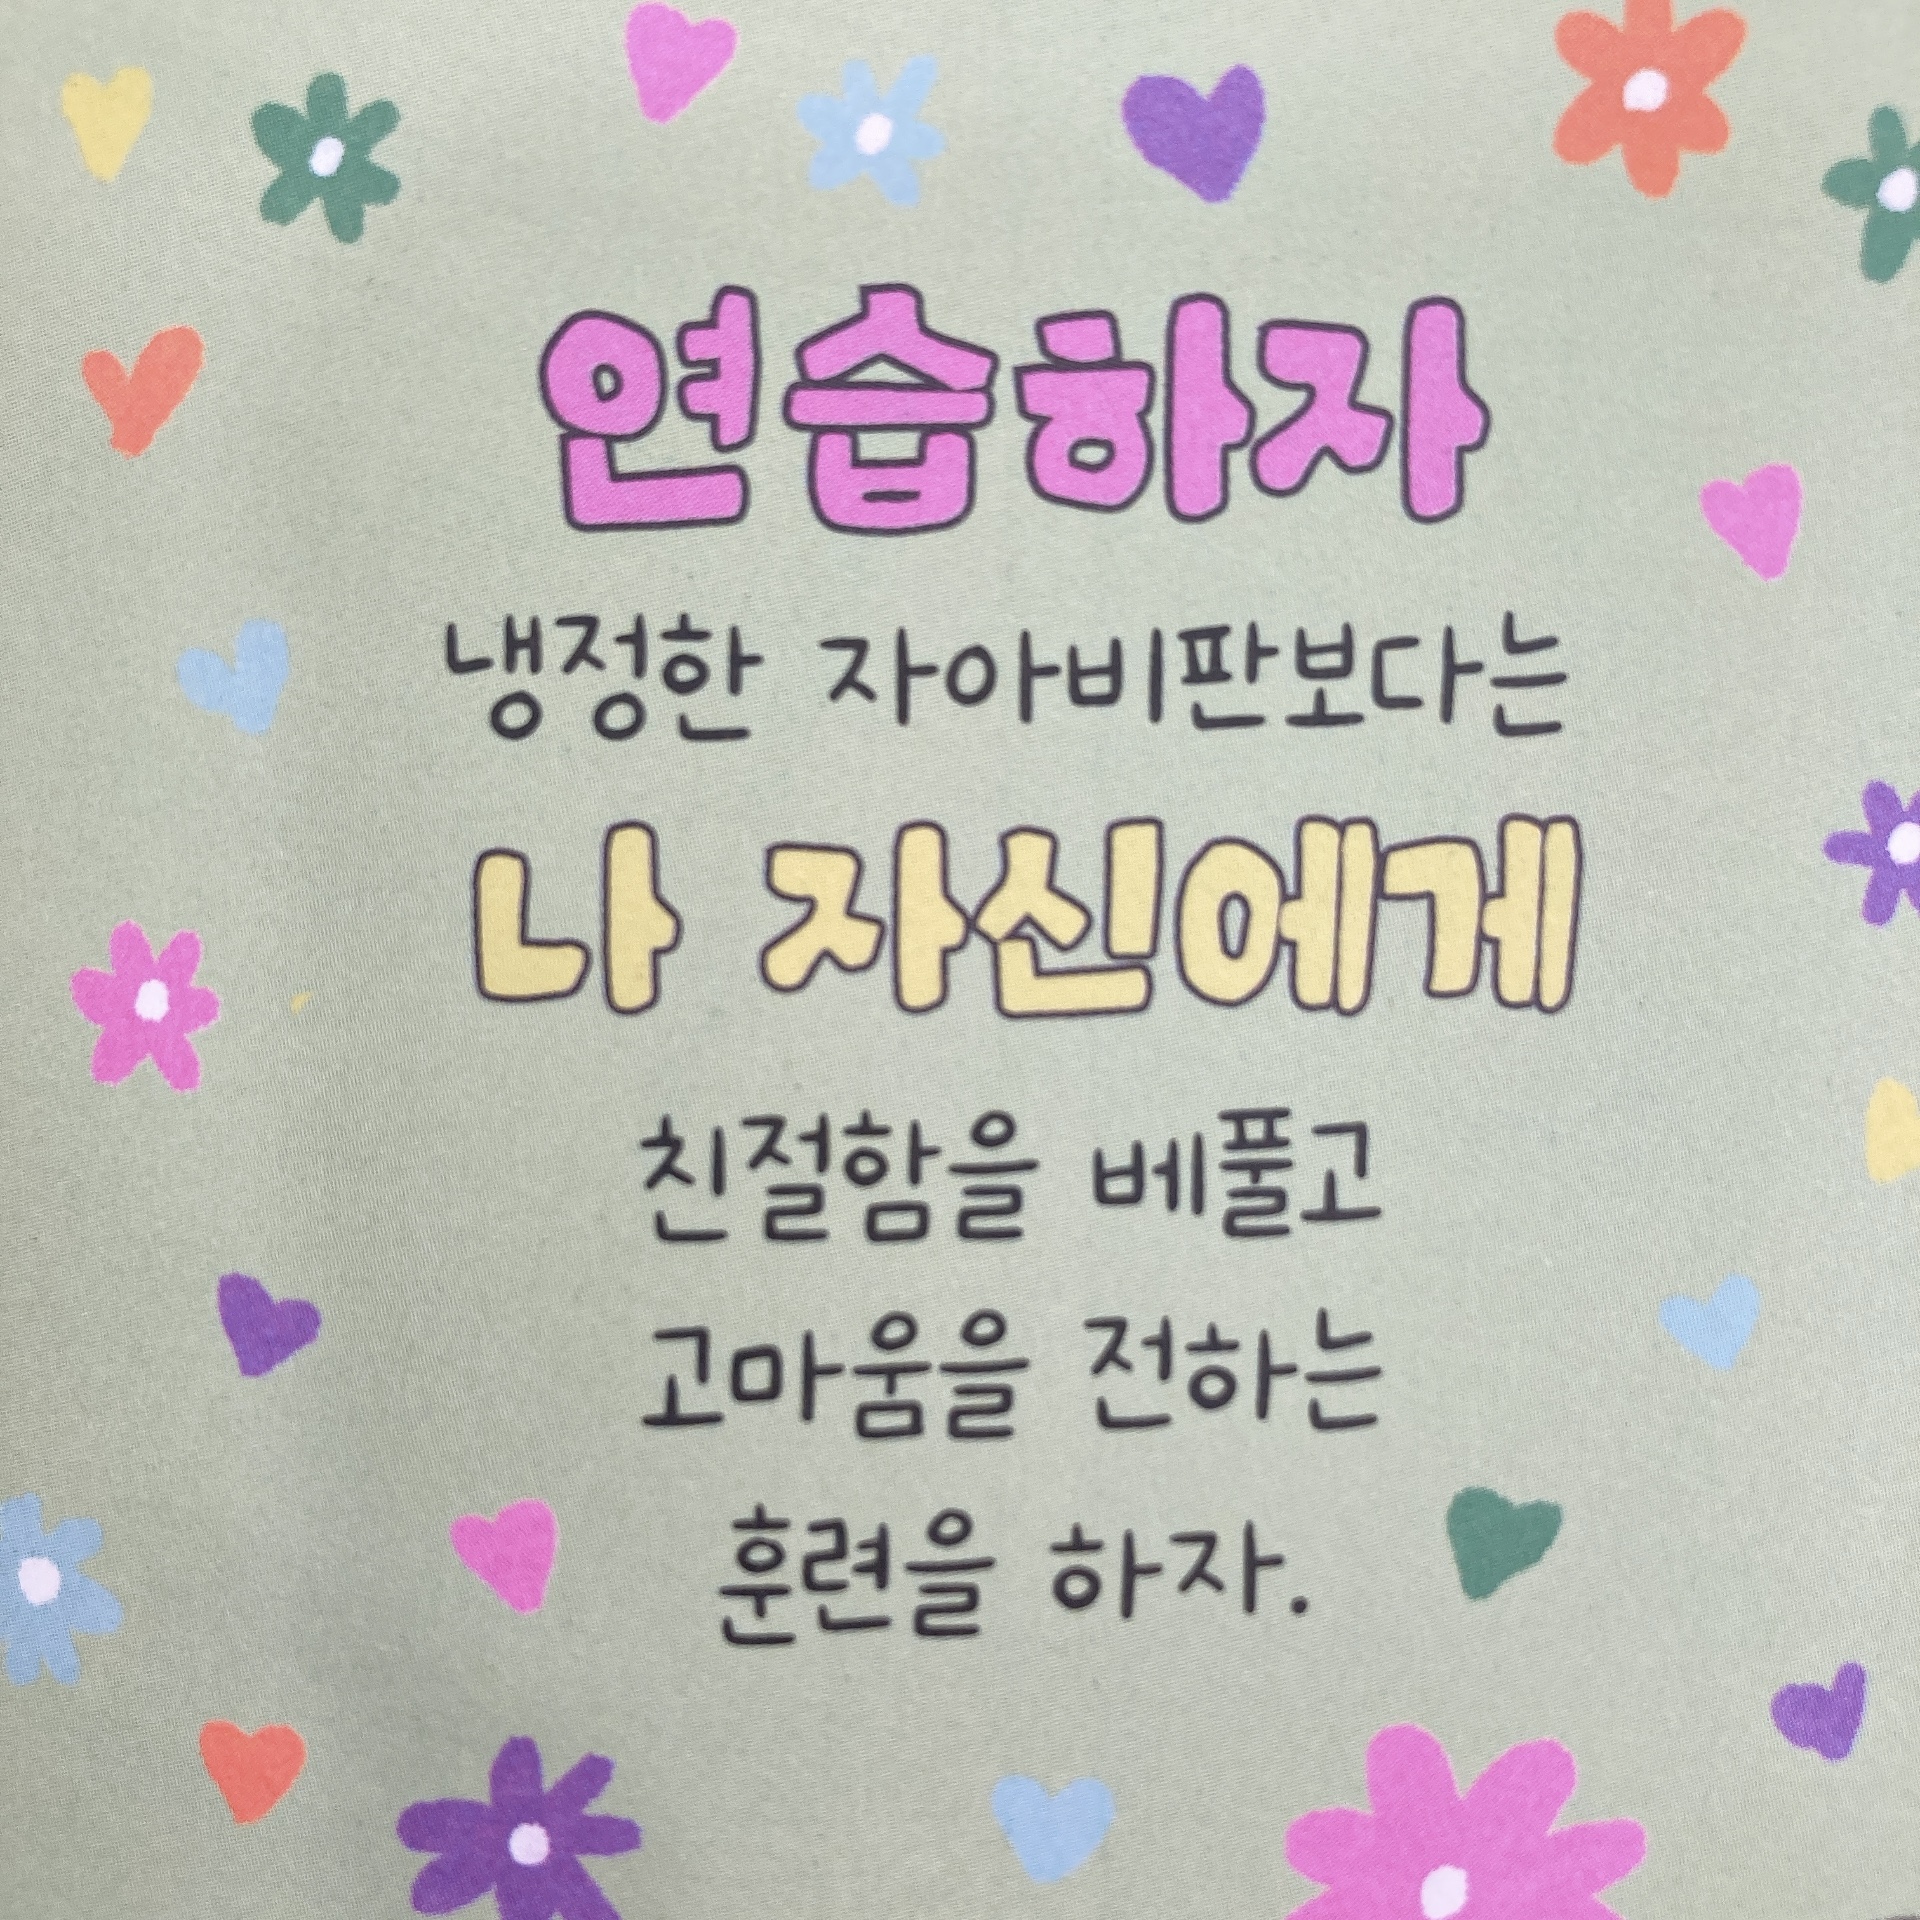 연습하자
냉정한 자아비판보다는
나 자신에게
친절함을 베풀고
고마움을 전하는
훈련을 하자.